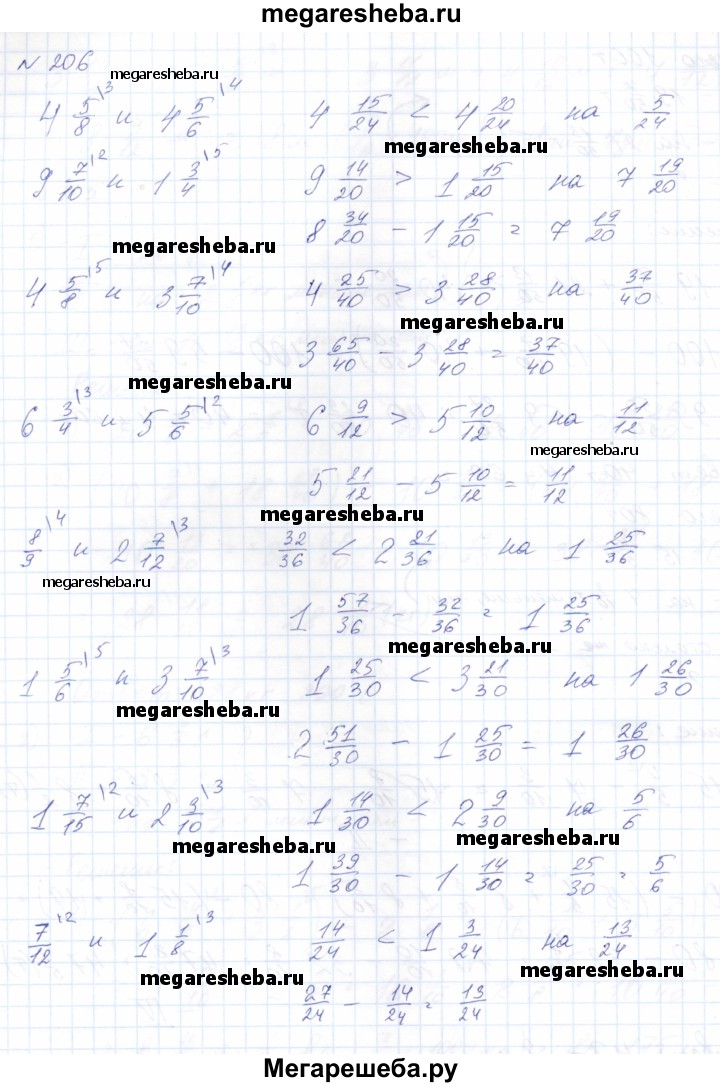 megaresheba.ru
N 206
megaresheba.ru
4 5/8 \3 и 4 5/6 \4 4 15/24 < 4 20/24 на 5/24
megaresheba.ru
9 7/10 \2 и 1 3/4 \5 9 14/20 > 1 15/20 на 7 19/20
8 34/20 - 1 15/20 = 7 19/20
megaresheba.ru
4 5/8 \5 и 3 7/10 \4 4 25/40 > 3 28/40 на 37/40
megaresheba.ru
3 65/40 - 3 28/40 = 37/40
megaresheba.ru
6 3/4 \3 и 5 5/6 \2 6 9/12 > 5 10/12 на 11/12
megaresheba.ru
5 21/12 - 5 10/12 = 11/12
megaresheba.ru
8/9 \4 и 2 7/12 \3 32/36 < 2 21/36 на 1 25/36
megaresheba.ru
1 57/36 - 32/36 = 1 25/36
megaresheba.ru
1 5/6 \5 и 3 7/10 \3 1 25/30 < 3 21/30 на 1 26/30
megaresheba.ru
2 51/30 - 1 25/30 = 1 26/30
1 7/15 \2 и 2 3/10 \3 1 14/30 < 2 9/30 на 5/6
megaresheba.ru
megaresheba.ru
1 39/30 - 1 14/30 = 25/30 = 5/6
7/12 \2 и 1 1/8 \3 14/24 < 1 3/24 на 13/24
megaresheba.ru
megaresheba.ru
27/24 - 14/24 = 13/24
Мегарешеба.ру